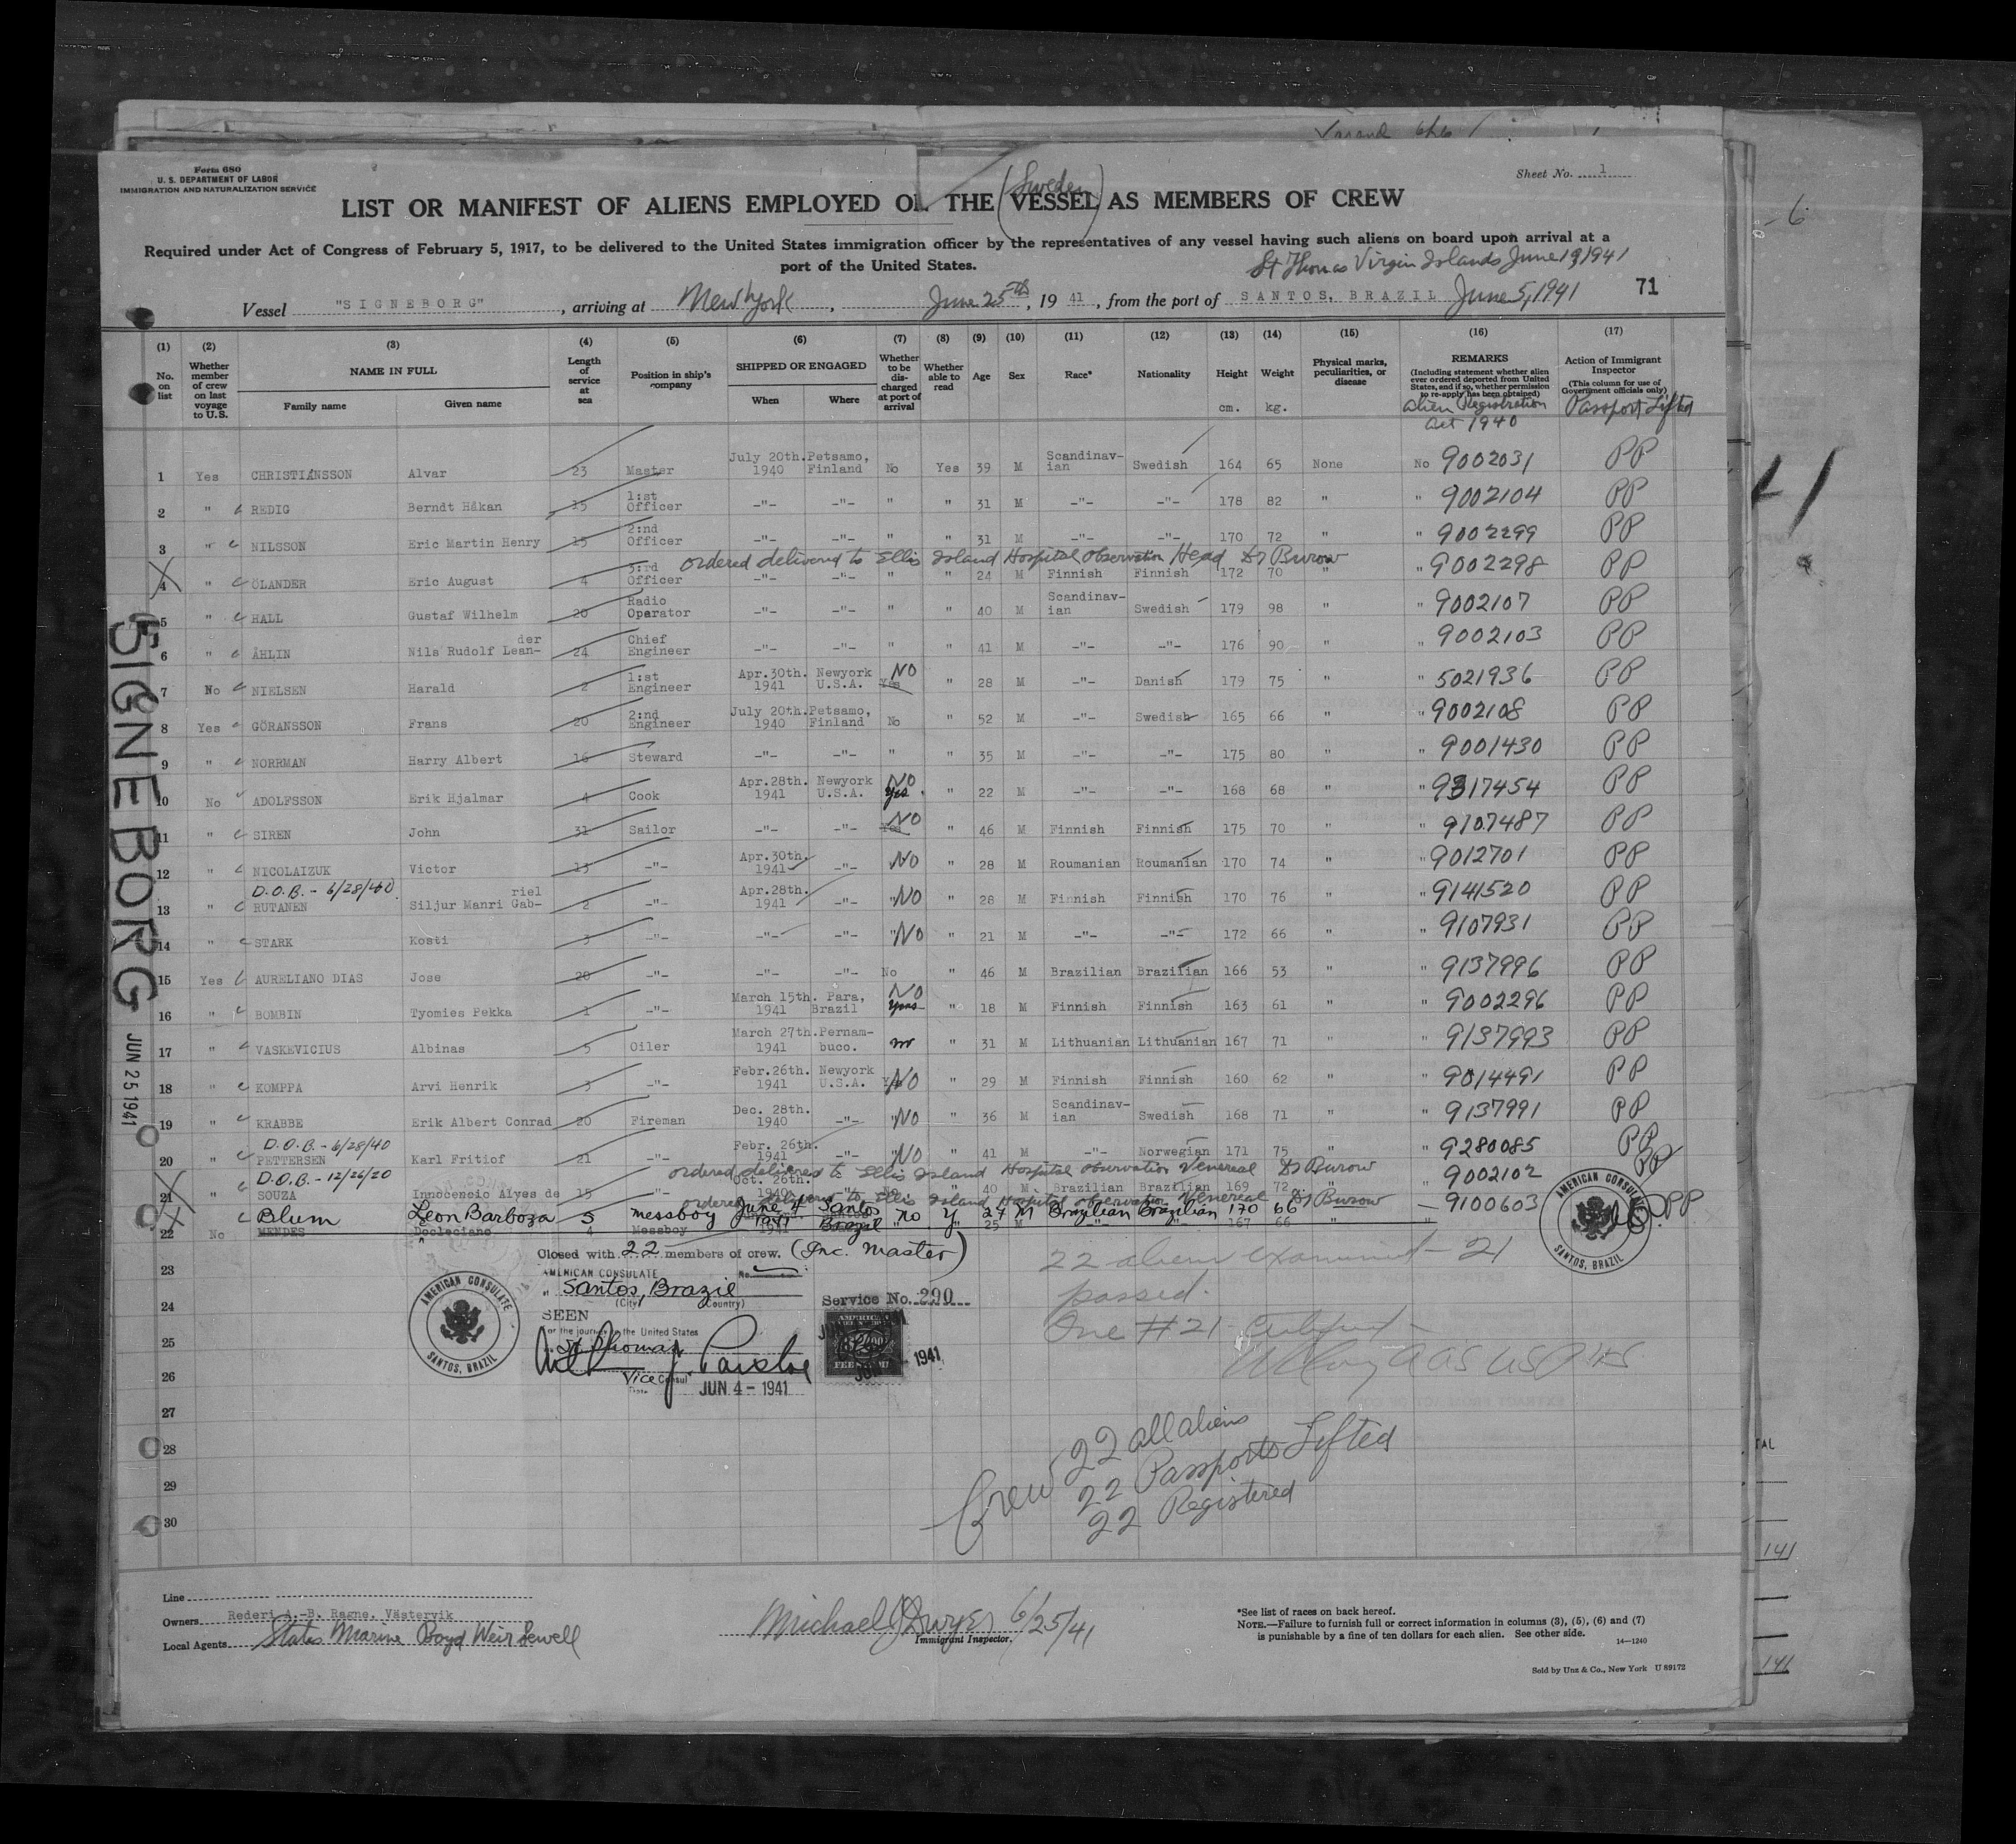 Form 680
U. S. DEPARTMENT OF LABOR
IMMIGRATION AND NATURALIZATION SERVICE
Sheet No. 1
(Sweden)
LIST OR MANIFEST OF ALIENS EMPLOYED ON THE VESSEL AS MEMBERS OF CREW
Required under Act of Congress of February 5, 1917, to be delivered to the United States immigration officer by the representatives of any vessel having such aliens on board upon arrival at a
port of the United States.
St Thomas Virgin Islands June 19, 1941
Vessel "SIGNEBORG", arriving at New York, June 25th, 19 41, from the port of SANTOS, BRAZIL June 5, 1941
71
(1) (2) (3) (4) (5) (6) (7) (8) (9) (10) (11) (12) (13) (14) (15) (16) (17)
No. on list
Whether member of crew on last voyage to U.S.
NAME IN FULL
Family name Given name
Length of service at sea
Position in ship's company
SHIPPED OR ENGAGED
When Where
Whether to be discharged at port of arrival
Whether able to read
Age
Sex
Race*
Nationality
Height cm.
Weight kg.
Physical marks, peculiarities, or disease
REMARKS
(Including statement whether alien ever ordered deported from United States, and if so, whether permission to re-apply has been obtained)
Alien Registration Act 1940
Action of Immigrant Inspector
(This column for use of Government officials only)
Passport Lifted
1 Yes CHRISTIÁNSSON Alvar 23 Master July 20th. 1940 Petsamo, Finland No Yes 39 M Scandinav-ian Swedish 164 65 None No 9002031 PP
2 " REDIG Berndt Håkan 15 1:st Officer -"- -"- " " 31 M -"- -"- 178 82 " " 9002104 PP
3 " NILSSON Eric Martin Henry 15 2:nd Officer -"- -"- " " 31 M -"- -"- 170 72 " " 9002299 PP
ordered delivered to Ellis Island Hospital observation Head Dr Burow
4 " ÖLANDER Eric August 4 3:rd Officer -"- -"- " " 24 M Finnish Finnish 172 70 " " 9002298 PP
5 " HALL Gustaf Wilhelm 20 Radio Operator -"- -"- " " 40 M Scandinav-ian Swedish 179 98 " " 9002107 PP
6 " ÅHLIN Nils Rudolf Lean-der 24 Chief Engineer -"- -"- " " 41 M -"- -"- 176 90 " " 9002103 PP
7 No NIELSEN Harald 2 1:st Engineer Apr.30th. 1941 Newyork U.S.A. Yes NO " 28 M -"- Danish 179 75 " " 5021936 PP
8 Yes GÖRANSSON Frans 20 2:nd Engineer July 20th. 1940 Petsamo, Finland No " 52 M -"- Swedish 165 66 " " 9002108 PP
9 " NORRMAN Harry Albert 16 Steward -"- -"- " " 35 M -"- -"- 175 80 " " 9001430 PP
10 No ADOLFSSON Erik Hjalmar 4 Cook Apr.28th. 1941 Newyork U.S.A. Yes NO " 22 M -"- -"- 168 68 " " 9317454 PP
11 " SIREN John 31 Sailor -"- -"- Yes NO " 46 M Finnish Finnish 175 70 " " 9107487 PP
12 " NICOLAIZUK Victor 13 -"- Apr.30th. 1941 -"- NO " 28 M Roumanian Roumanian 170 74 " " 9012701 PP
D.O.B. - 6/28/40
13 " RUTANEN Siljur Manri Gab-riel 2 -"- Apr.28th. 1941 -"- " NO " 28 M Finnish Finnish 170 76 " " 9141520 PP
14 " STARK Kosti 3 -"- -"- -"- " NO " 21 M -"- -"- 172 66 " " 9107931 PP
15 Yes AURELIANO DIAS Jose 20 -"- -"- -"- No " 46 M Brazilian Brazilian 166 53 " " 9137996 PP
16 " BOMBIN Tyomies Pekka 1 -"- March 15th. 1941 Para, Brazil Yes NO " 18 M Finnish Finnish 163 61 " " 9002296 PP
17 " VASKEVICIUS Albinas 5 Oiler March 27th. 1941 Pernam-buco. no " 31 M Lithuanian Lithuanian 167 71 " " 9137993 PP
18 " KOMPPA Arvi Henrik 3 -"- Febr.26th. 1941 Newyork U.S.A. NO " 29 M Finnish Finnish 160 62 " " 9014491 PP
19 " KRABBE Erik Albert Conrad 20 Fireman Dec. 28th. 1940 -"- " NO " 36 M Scandinav-ian Swedish 168 71 " " 9137991 PP
D.O.B. - 6/28/40
20 " PETTERSEN Karl Fritiof 21 -"- Febr. 26th. 1941 -"- " NO " 41 M -"- Norwegian 171 75 " " 9280085 PP
D.O.B. - 12/26/20 ordered delivered to Ellis Island Hospital observation Venereal Dr Burow
21 " SOUZA Innocencio Alves de 15 -"- Oct. 26th. 1940 -"- " 40 M Brazilian Brazilian 169 72 " 9002102 PP
ordered delivered to Ellis Island Hospital observation Venereal Dr Burow
Blum Leon Barboza 5 messboy June 4 1941 Santos Brazil no y 27 M Brazilian Brazilian 170 66 — 9100603 PP
22 No MENDES Docleciano 4 Messboy 1941 " 25 M -"- -"- 167 66 "
Closed with 22 members of crew. (Inc. Master)
22 aliens examined - 21
passed.
One # 21
23
24
25
26
27
28
29
30
AMERICAN CONSULATE No.
Santos, Brazil
(City) (Country)
SEEN
For the journey to the United States
St Thomas
Vice Consul
Date JUN 4 - 1941
Service No. 290
1941
AMERICAN CONSULATE
SANTOS, BRAZIL
AMERICAN CONSULATE
SANTOS, BRAZIL
Crew 22 all aliens
22 Passports Lifted
22 Registered
SIGNEBORG
JUN 25 1941
Line
Owners Rederi A.-B. Ragne, Västervik
Local Agents States Marine Boyd Weir Sewell
Michael J Dwyer 6/25/41
Immigrant Inspector.
*See list of races on back hereof.
NOTE.—Failure to furnish full or correct information in columns (3), (5), (6) and (7)
is punishable by a fine of ten dollars for each alien. See other side.
14—1240
Sold by Unz & Co., New York U 89172
- 6
141
141